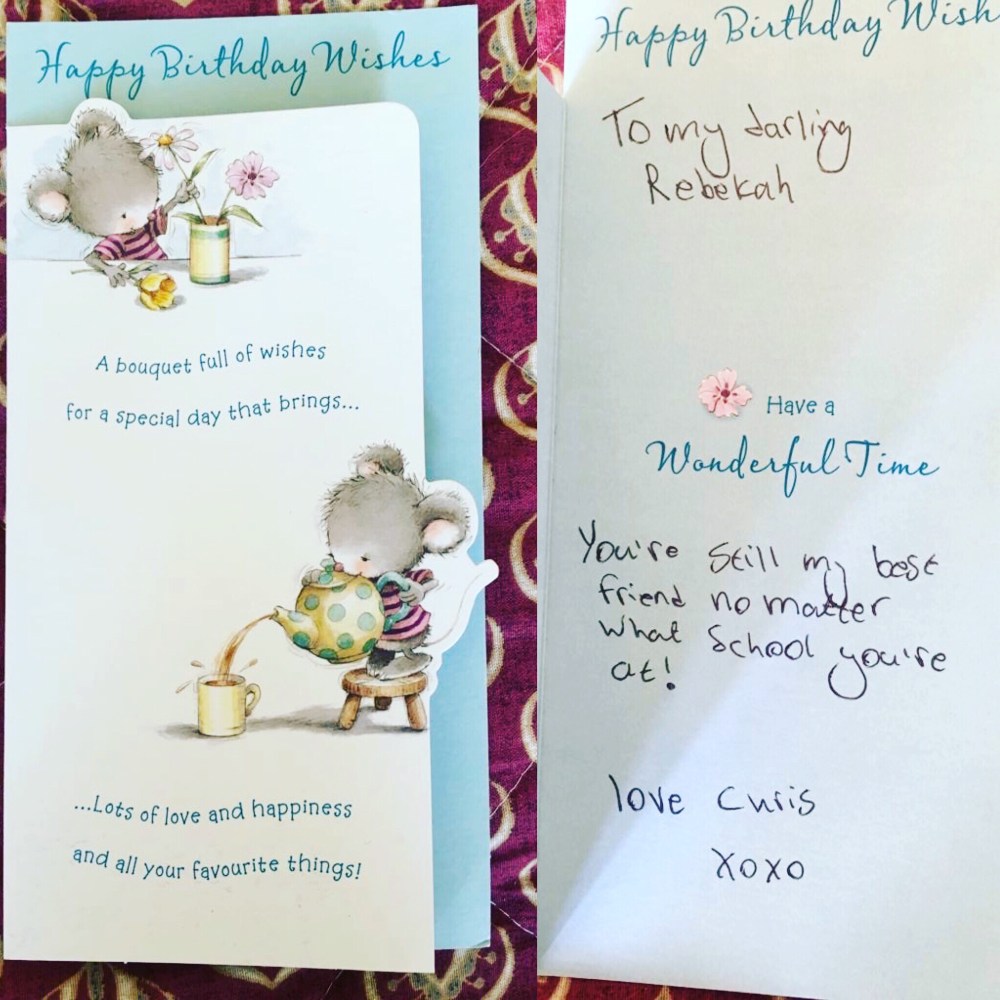 Happy Birthday Wishes
A bouquet full of wishes
for a special day that brings...
...Lots of love and happiness
and all your favourite things!
Happy Birthday Wish
To my darling
Rebekah
Have a
Wonderful Time
You're still my best
friend no matter
what school you're
at!
love Chris
xoxo